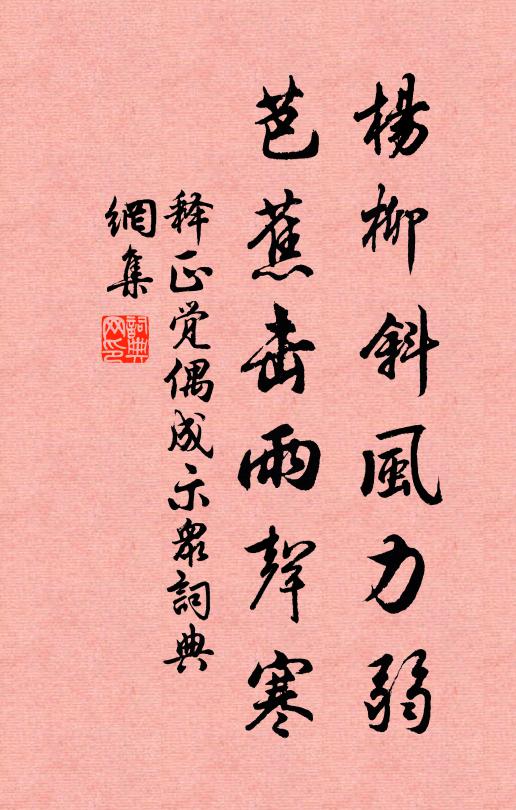 楊柳斜風力弱
芭蕉击雨聲寒
释正觉偶成示眾詞典
網集
詞典
网印